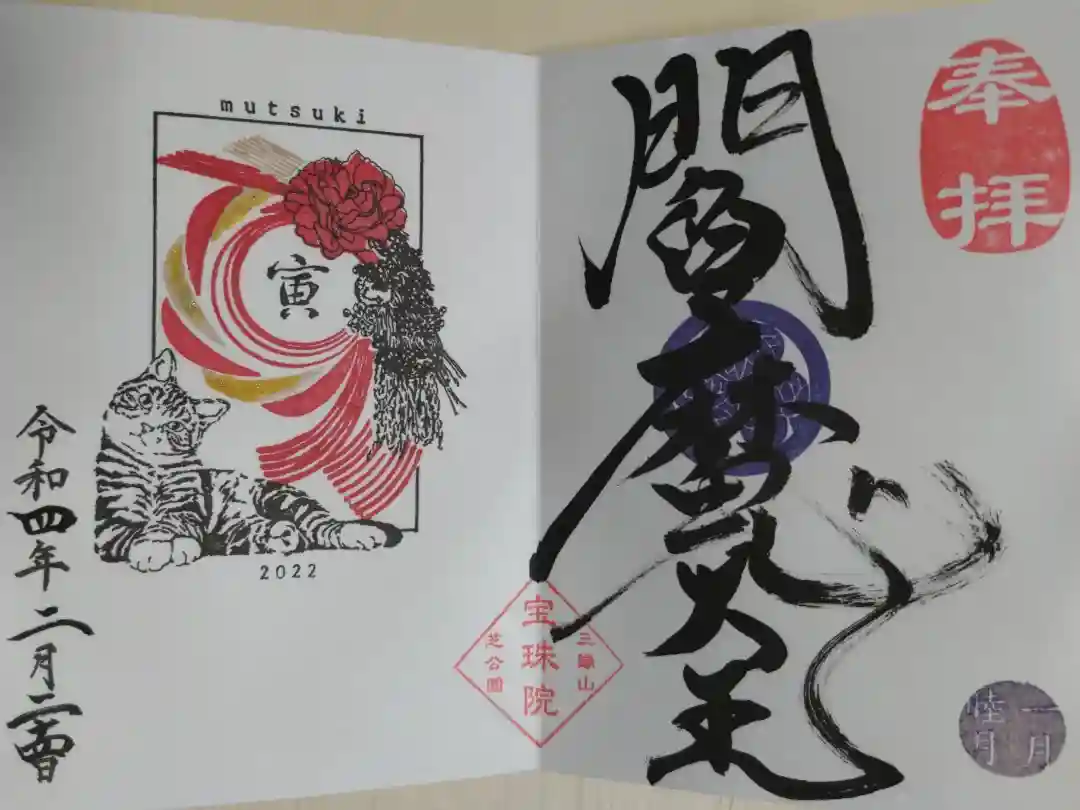 mutsuki
寅
2022
令和四年 二月二十四日
奉拝
閻魔大王
三縁山
宝珠院
芝公園
一月
睦月